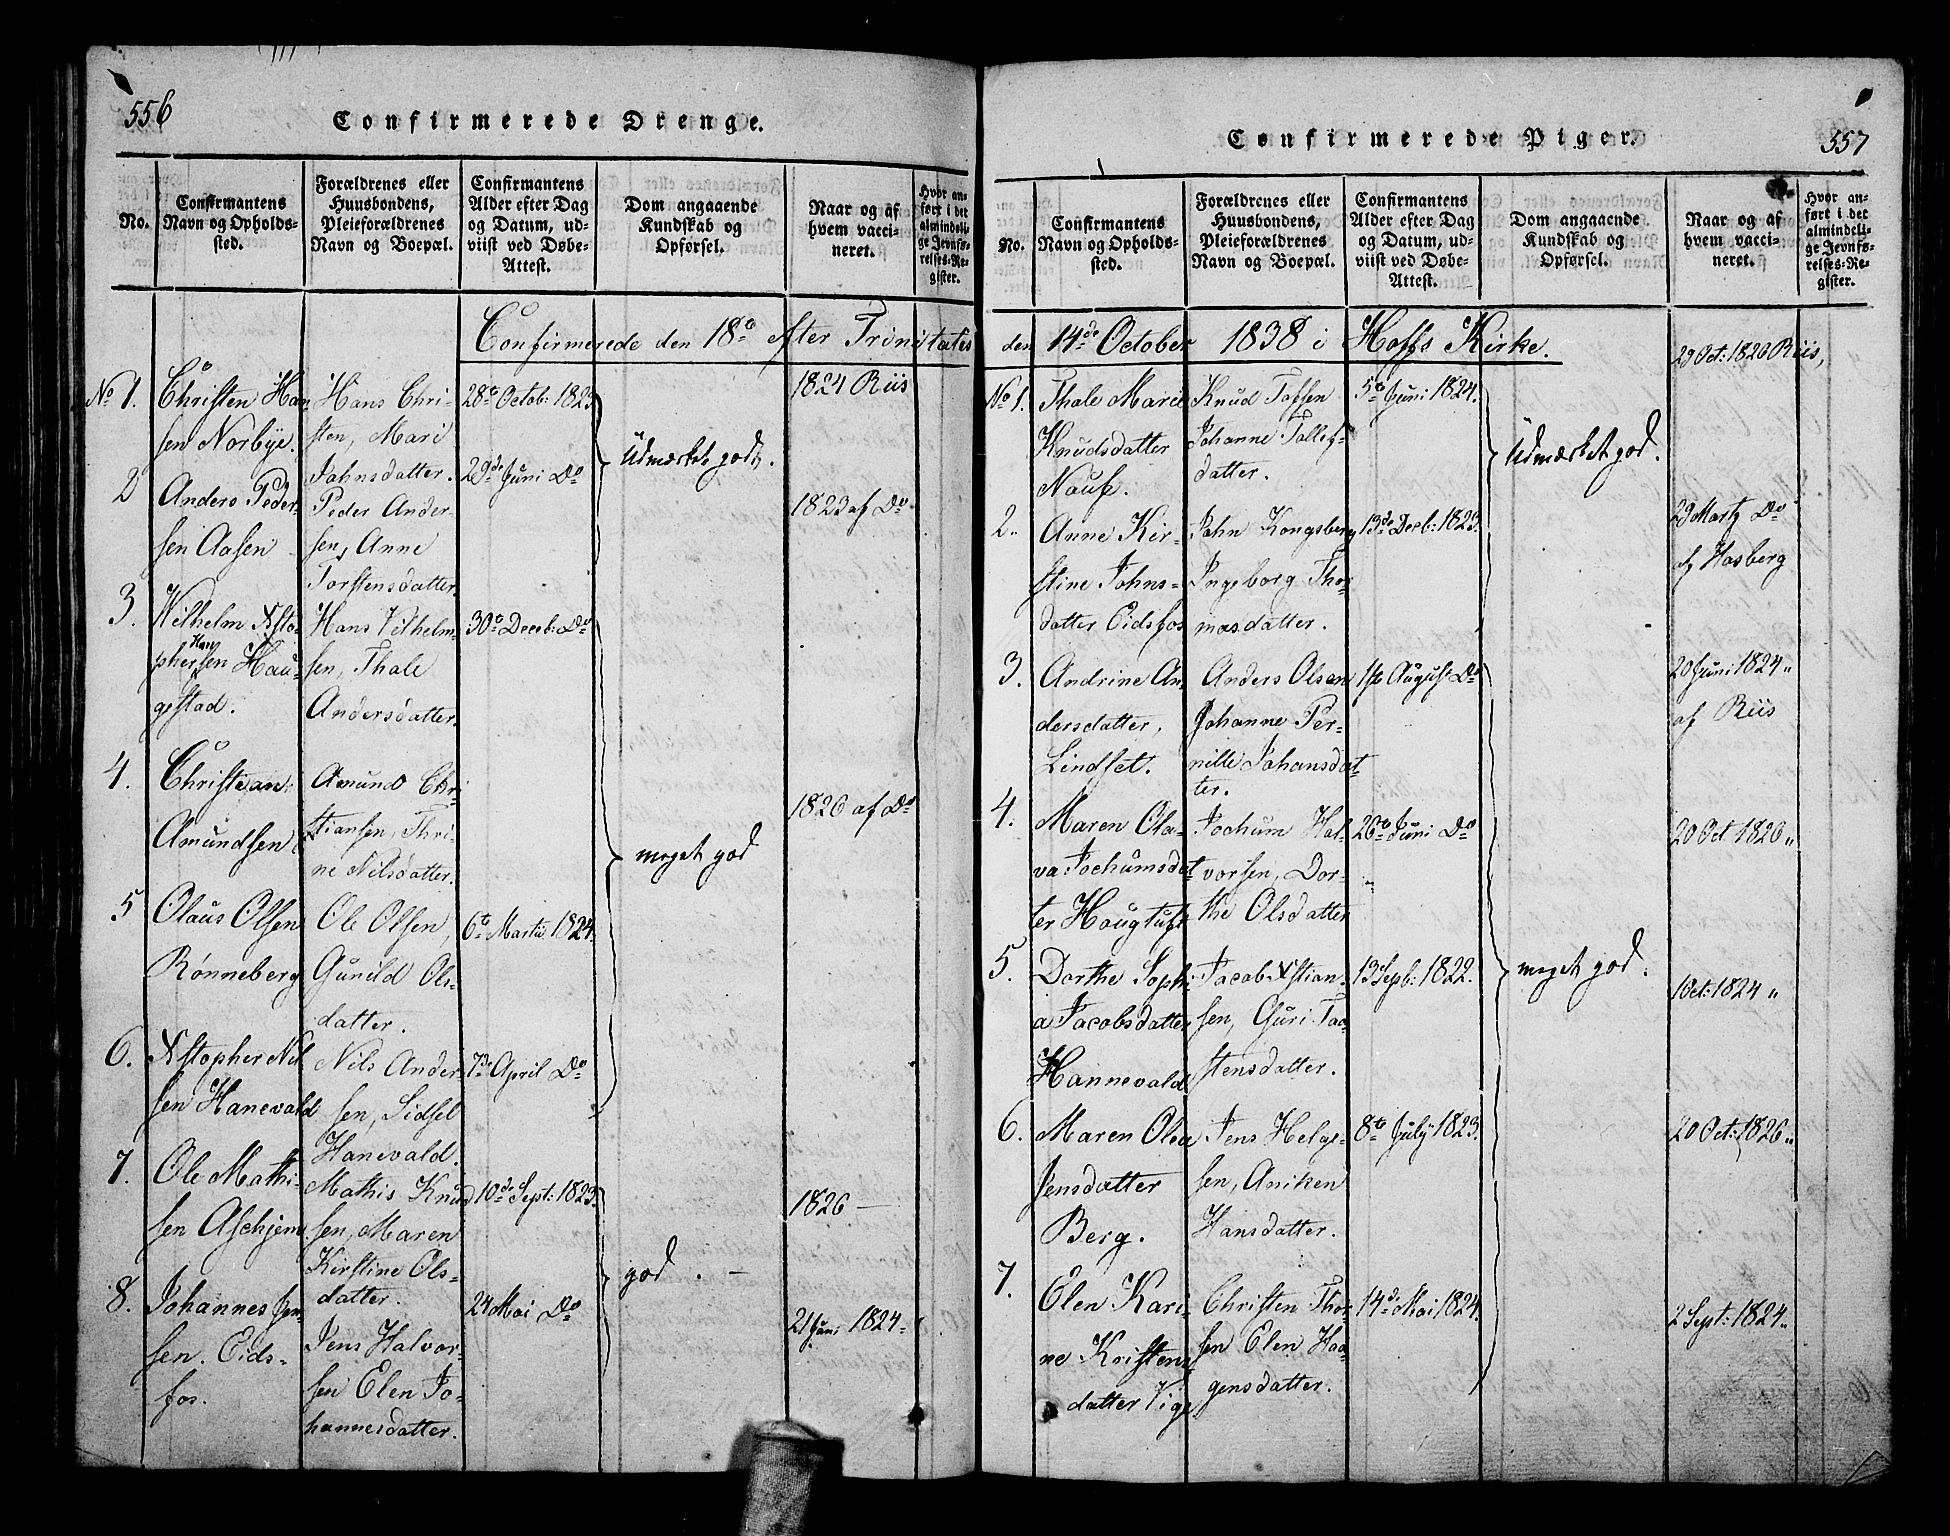 556
Confirmerede Drenge.
No.
Confirmantens
Navn og Opholds-
sted.
Forældrenes eller
Huusbondens,
Pleieforældrenes
Navn og Boepæl.
Confirmantens
Alder efter Dag
og Datum, ud-
viist ved Døbe-
Attest.
Dom angaaende
Kundskab og
Opførsel.
Naar og af
hvem vacci-
neret.
Hvor an-
ført i det
almindeli-
ge Jevnfø-
relses-Re-
gister.
Confirmerede den 18de efter Trinitates
No 1.
Christen Han
sen Norbye.
Hans Chri-
sten, Mari
Jahnsdatter.
28de Octob: 1823
Udmærket god.
1824 Riis
2
Anders Peder-
sen Aasen
Peder Ander-
sen, Anne
Torstensdatter
29de Juni Do
1823 af Do
3.
Wilhelm Xsto-
Han
phersen Hau-
gestad.
Hans Vilhelm-
sen, Thale
Andersdatter.
30te Deceb: Do
4.
Christian
Amundsen
Amund Chr-
stiansen, Thri-
ne Nilsdatter.
meget god
1826 af Do
5
Olaus Olsen
Rønneberg
Ole Olsen,
Gunild Ols-
datter.
6te Martii 1824.
6.
Xstopher Nil-
sen Hanevald
Nils Ander-
sen, Sidsel
Hanevald.
7de April Do
7.
Ole Mathi-
sen Aschjem
Mathis Knud
sen, Maren
Kirstine Ols-
datter.
10de Sept: 1823.
god. -
1826 -
8.
Johannes Jen
sen. Eids-
fos.
Jens Halvor-
sen Elen Jo-
hannesdatter.
24 Mai Do
21 Juni 1824
557
Confirmerede Piger.
No.
Confirmantens
Navn og Opholds-
sted.
Forældrenes eller
Huusbondens,
Pleieforældrenes
Navn og Boepæl.
Confirmantens
Alder efter Dag
og Datum, ud-
viist ved Døbe-
Attest.
Dom angaaende
Kundskab og
Opførsel.
Naar og af
hvem vacci-
neret.
Hvor an-
ført i det
almindeli-
ge Jevnfø-
relses-Re-
gister.
den 14de October 1838 i Hoffs Kirke.
No 1.
Thale Marie
Knudsdatter
Knud
Johanne Tollef-
datter.
5te Juni 1824.
Udmærket god.
29 Oct: 1826 Riis,
2.
Anne Kir-
stine Johns-
datter Eidsfos
John Kongsberg
Ingeborg Tho-
masdatter.
13de Decb: 1823.
29 Martz Do
af Hasberg
3.
Andrine An-
dersdatter,
Lindset.
Anders Olsen
Johanne Per-
nille Johansdat-
ter.
1ste August Do
20 Juni 1824 "
af Riis
4.
Maren Ola-
va Jochumsdat-
ter Haugtuft
Jochum Hal-
vorsen, Dor-
the Olsdatter
26te Juni Do
20 Oct 1826 "
5.
Dorthe Sophi-
a Jacobsdatter
Hannevald
Jacob Xstian-
sen, Guri Too-
stensdatter.
13 Sepb: 1822.
meget god.
1 Oct: 1824 "
6.
Maren Olea
Jensdatter
Berg.
Jens Helge-
sen, Aniken
Hansdatter.
8de July 1823.
20 Oct: 1826 "
7.
Elen Kari-
ne Kristens-
datter Vige
Christen Thor-
sen Elen Haa-
gensdatter.
14de Mai 1824.
2 Sept: 1824 "